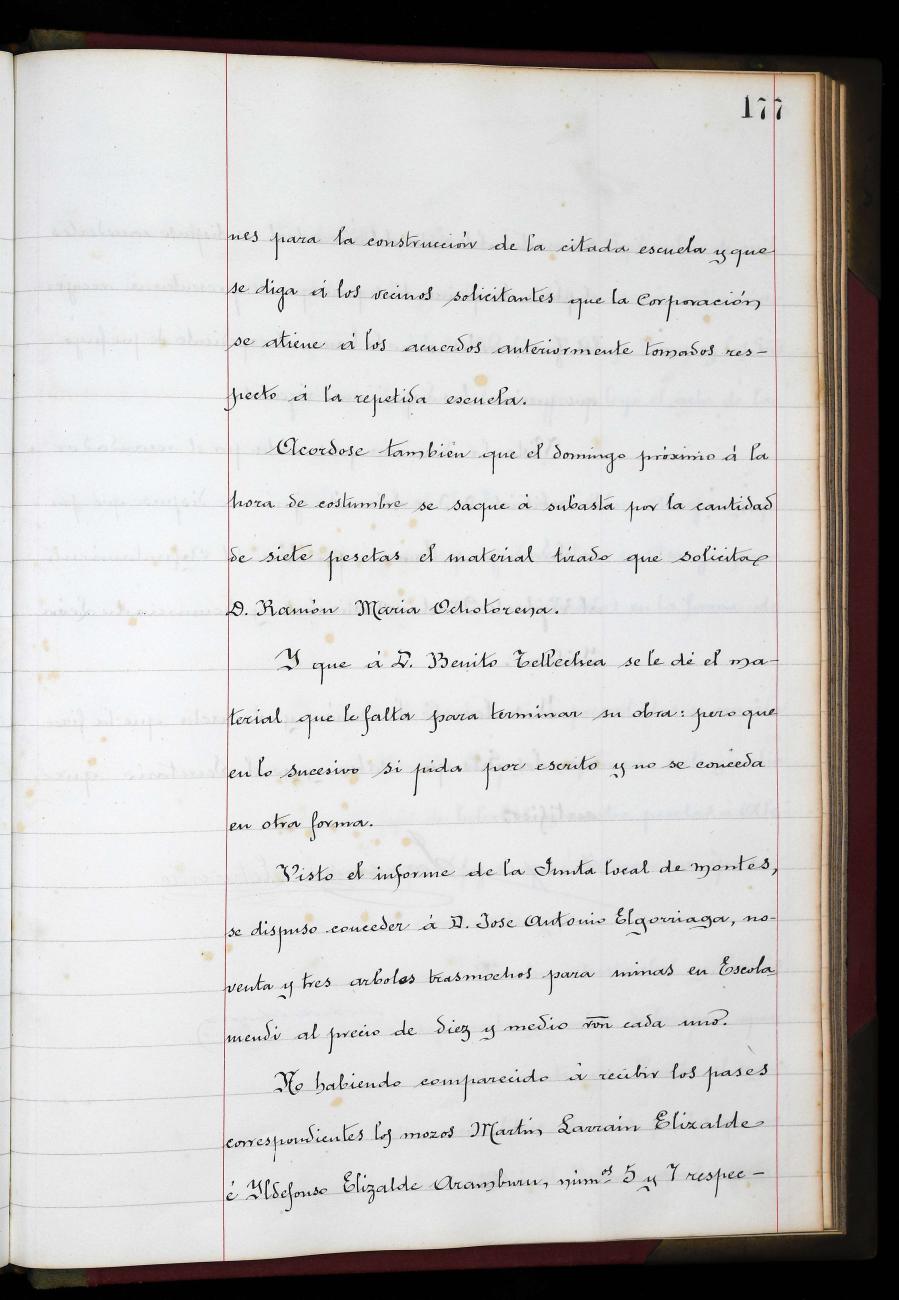 177
nes para la construcción de la citada escuela y que
se diga á los vecinos solicitantes que la Corporación
se atiene á los acuerdos anteriormente tomados res-
pecto á la repetida escuela.
Acordose también que el domingo próximo á la
hora de costumbre se saque á subasta por la cantidad
de siete pesetas el material tirado que solicita
D. Ramón Maria Ochotorena.
Y que á D. Benito Tellechea se le dé el ma-
terial que le falta para terminar su obra: pero que
en lo sucesivo si pida por escrito y no se conceda
en otra forma.
Visto el informe de la Junta local de montes,
se dispuso conceder á D. Jose Antonio Elgorriaga, no-
venta y tres arboles trasmochos para minas en Escola
mendi al precio de diez y medio rvn cada uno.
No habiendo comparecido á recibir los pases
correspondientes los mozos Martin Larrain Elizalde
é Yldefonso Elizalde Aramburu, núm.os 5 y 7 respec-